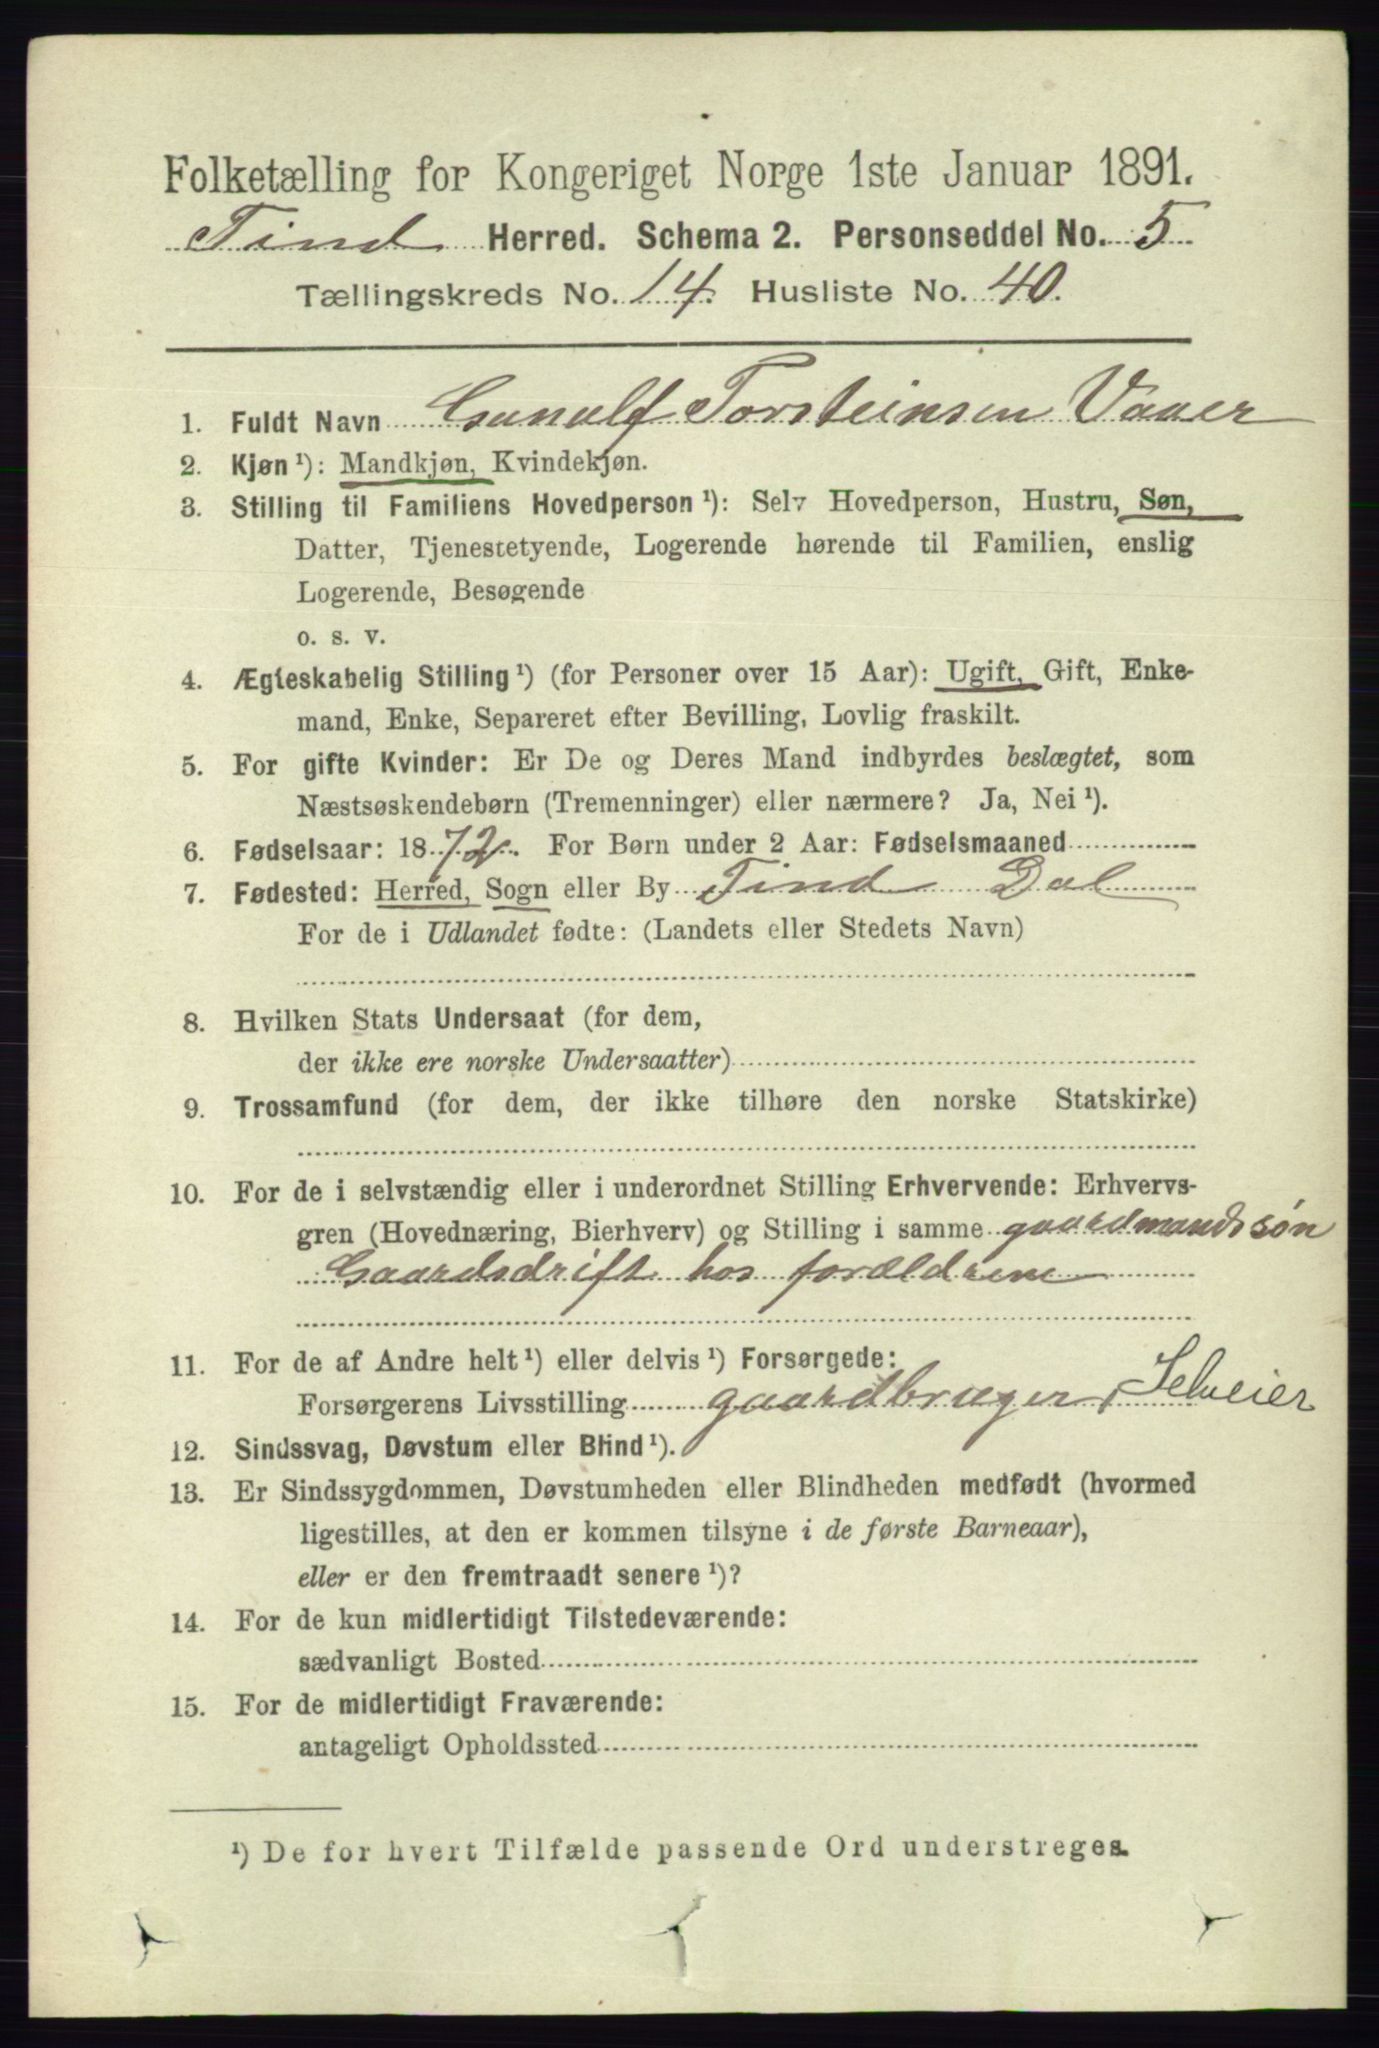 Folketælling for Kongeriget Norge 1ste Januar 1891.
Tind Herred. Schema 2. Personseddel No. 5
Tællingskreds No. 14. Husliste No. 40.
1. Fuldt Navn Gunulf Torsteinsen Vaaer
2. Kjøn ¹): Mandkjøn, Kvindekjøn.
3. Stilling til Familiens Hovedperson ¹): Selv Hovedperson, Hustru, Søn,
Datter, Tjenestetyende, Logerende hørende til Familien, enslig
Logerende, Besøgende
o. s. v.
4. Ægteskabelig Stilling ¹) (for Personer over 15 Aar): Ugift, Gift, Enke-
mand, Enke, Separeret efter Bevilling, Lovlig fraskilt.
5. For gifte Kvinder: Er De og Deres Mand indbyrdes beslægtet, som
Næstsøskendebørn (Tremenninger) eller nærmere? Ja, Nei ¹).
6. Fødselsaar: 1872. For Børn under 2 Aar: Fødselsmaaned
7. Fødested: Herred, Sogn eller By Tind Dal
For de i Udlandet fødte: (Landets eller Stedets Navn)
8. Hvilken Stats Undersaat (for dem,
der ikke ere norske Undersaatter)
9. Trossamfund (for dem, der ikke tilhøre den norske Statskirke)
10. For de i selvstændig eller i underordnet Stilling Erhvervende: Erhvervs-
gren (Hovednæring, Bierhverv) og Stilling i samme gaardmandssøn
Gaardsdrift hos forældrene
11. For de af Andre helt ¹) eller delvis ¹) Forsørgede:
Forsørgerens Livsstilling gaardbruger, Selveier
12. Sindssvag, Døvstum eller Blind ¹).
13. Er Sindssygdommen, Døvstumheden eller Blindheden medfødt (hvormed
ligestilles, at den er kommen tilsyne i de første Barneaar),
eller er den fremtraadt senere ¹)?
14. For de kun midlertidigt Tilstedeværende:
sædvanligt Bosted
15. For de midlertidigt Fraværende:
antageligt Opholdssted
¹) De for hvert Tilfælde passende Ord understreges.